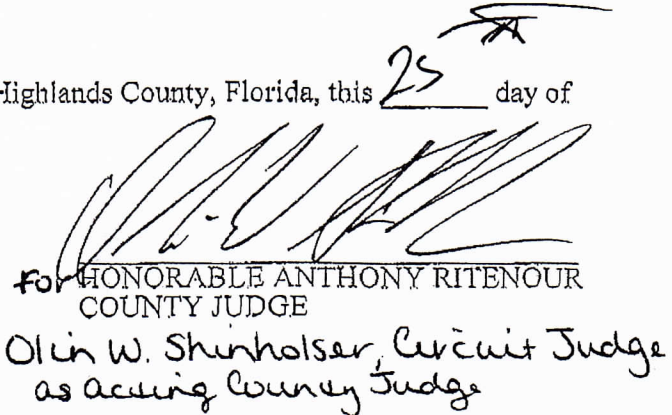 Highlands County, Florida, this 25 day of
For HONORABLE ANTHONY RITENOUR
COUNTY JUDGE
Olin W. Shinholser, Circuit Judge
as acting County Judge